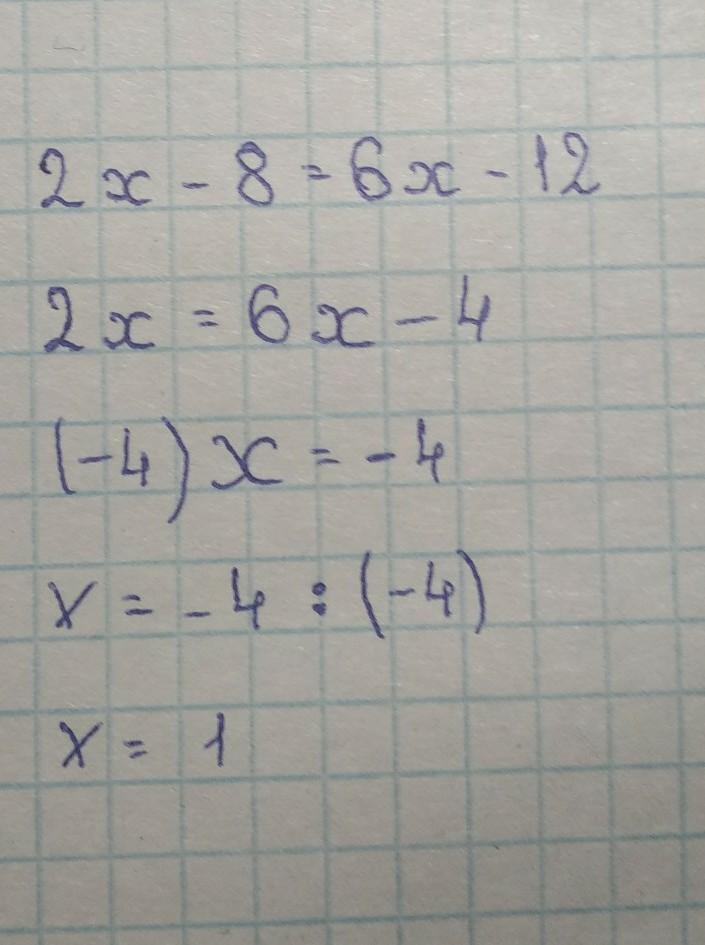 2x - 8 = 6x - 12
2x = 6x - 4
(-4)x = -4
x = -4 : (-4)
x = 1